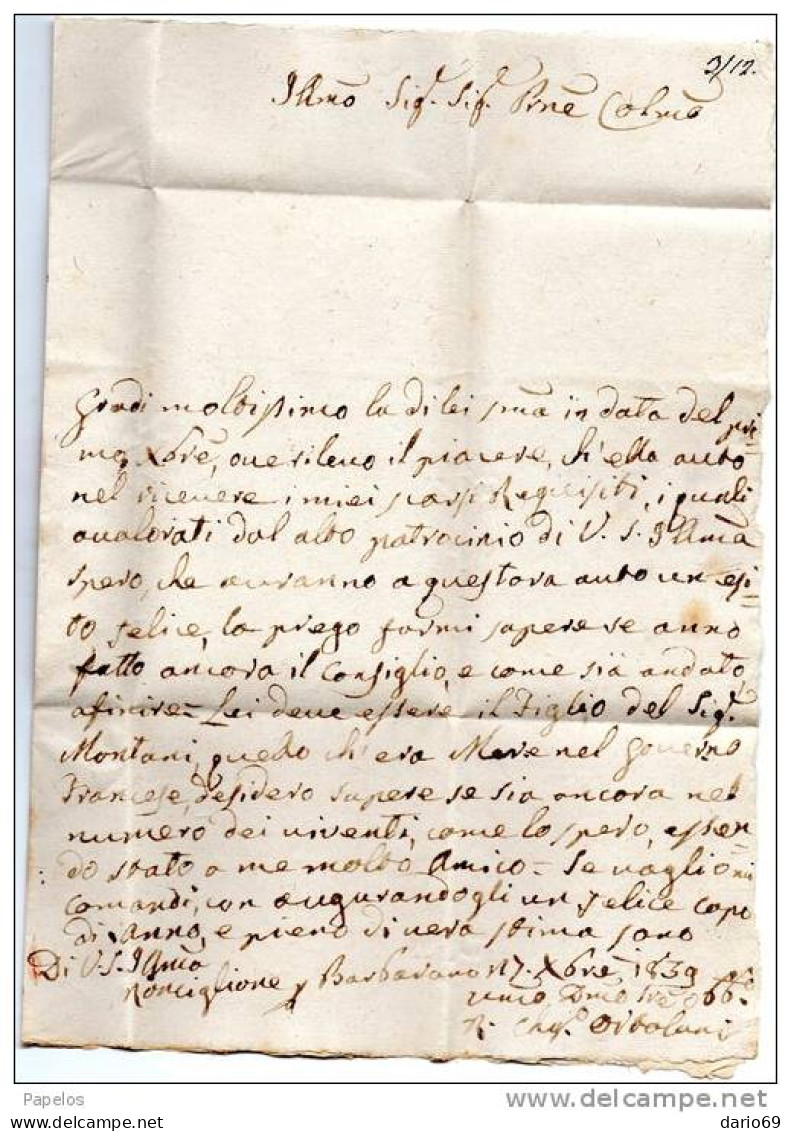 3/12.
Illmo Sig.r Sig.r Prne Colmo
Gradi moltissimo la di lei pma in data del pri=
mo, Xbre, ove rilevo il piacere, ch'ella auto
nel ricevere i miei scarsi Requisiti, i quali
avalorati dal alto patrocinio di V. S. Illma
spero, che avranno a quest'ora auto un esi=
to felice, la prego farmi sapere se anno
fatto ancora il Consiglio, e come sia andato
a finire = Lei deve essere il Figlio del Sig.r
Montani, quello ch'era Mere nel Governo
Francese, desidero sapere se sia ancora nel
numero dei viventi, come lo spero, essen
do stato a me molto Amico = Se vaglio mi
comandi, con augurandogli un felice capo
di anno, e pieno di vera stima sono
Di V. S. Illma
Ronciglione p Barbarano 17. Xbre 1839
umo Dmo Sre obb.mo
Ortolani
Papelos
delcampe.net
dario69